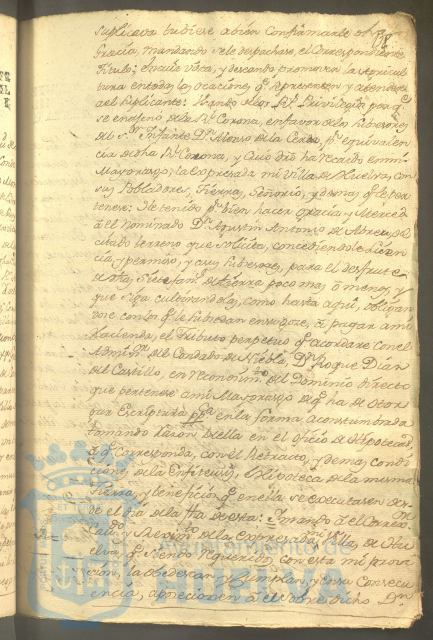 suplicava tubiese abien confirmarle dha
Gracia, mandando sele despachase, el Correspondiente
Titulo: En cuia vista, y deseando promover la Agricul
tura entodas las ocasiones, qe. se presenten, y atendiendo
ael suplicante: Usando delos Rs. Privilegios por qe.
se enageno dela Rl. Corona, enfavor delos Posehedores
del Sr. Infante Dn. Alonso dela Cerda, pr. equivalen
cia de dha Rl. Corona, y cuio dro ha recaido enmi
Mayorasgo, la expresada mi Villa de Huelva, con
sus Pobladores, tierras, Señorio, y demas qe. le per
tenese: He tenido pr. bien hacer gracia y Merced
á el nominado Dn. Agustin Antonio de Abreu, del
citado terreno que solicita, concediendole licen
cia, y permiso, y a sus subcesores, para el desfrute
de tierra poco mas, ó menos, y
que siga cultivandola, como hasta aqui, obligan
dose con los qe. le subcedan en su goze, á pagar ami
Hacienda, el tributo perpetuo qe. acordare con el
Admor. del Condado de Niebla, Dn. Roque Diaz
del Castillo, en reconocimto. del Dominio directo
que pertenese ami Mayorasgo, de qe. ha de otor
gar Escriptura pca. en la forma acostumbrada
tomando razon de ella en el oficio de Hipotecas
á qe. Corresponda, con el Retracto, y demas condi
ciones, dela Enfiteusis, é Hipoteca de la misma
tierra, y beneficios qe. en ella se executasen des
de el dia dela fha de esta: Y mando á el Concejo
de la expresada mi Villa, de Hu
elva, qe. siendo requerido con esta mi provi
sion, la obedescan, y cumplan, y en su consecu
encia, aposecionen á el sobre dicho Dn.
Ayuntamiento de
HUELVA